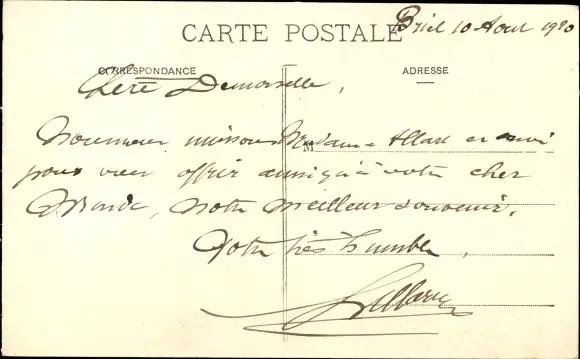 CARTE POSTALE
Briel 10 Aout 1920
CORRESPONDANCE
ADRESSE
Chere Demoiselle,
M
Madame Allard et moi
pour vous offrir ainsi qu'à votre cher
Monde, notre meilleur souvenir.
Votre très humble,